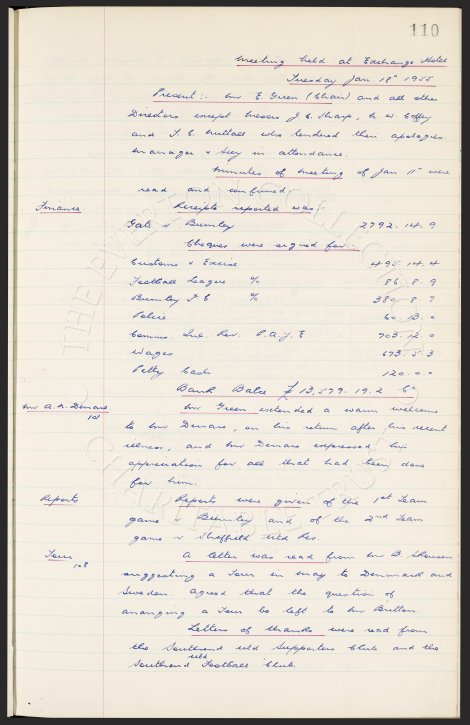 110
Meeting held at Exchange Hotel
Tuesday Jan 18th 1955
Present:- Mr E. Green (Chair) and all other
Directors except Messrs J. C. Sharp, N. W. Coffey
and T. C. Nuttall who tendered their apologies.
Manager & Secy in attendance.
Minutes of meeting of Jan 11th were
read and confirmed.
Finance Receipts reported was:-
Gate v Burnley 2792.14.9
Cheques were signed for:-
Customs & Excise 495.14.4
Football League % 86.8.9
Burnley F.C % 389.8.7
Police 60.13.0
Comms. Inl. Rev. P.A.Y.E 703.12.0
Wages 673.5.3
Petty Cash 120.0.0
Bank Balce £13,579.19.2 Cr
Mr A. N. Denaro Mr Green extended a warm welcome
101 to Mr Denaro, on his return after his recent
illness, and Mr Denaro expressed his
appreciation for all that had been done
for him.
Reports Reports were given of the 1st Team
game v Burnley and of the 2nd Team
game v Sheffield Utd Res.
Tour A letter was read from Mr B.
108 suggesting a Tour in May to Denmark and
Sweden. Agreed that the question of
arranging a Tour be left to Mr Britton.
Letters of thanks were read from
the Southend Utd Supporters Club and the
Southend Utd Football Club.
THE EVERTON COLLECTION
CHARITABLE TRUST